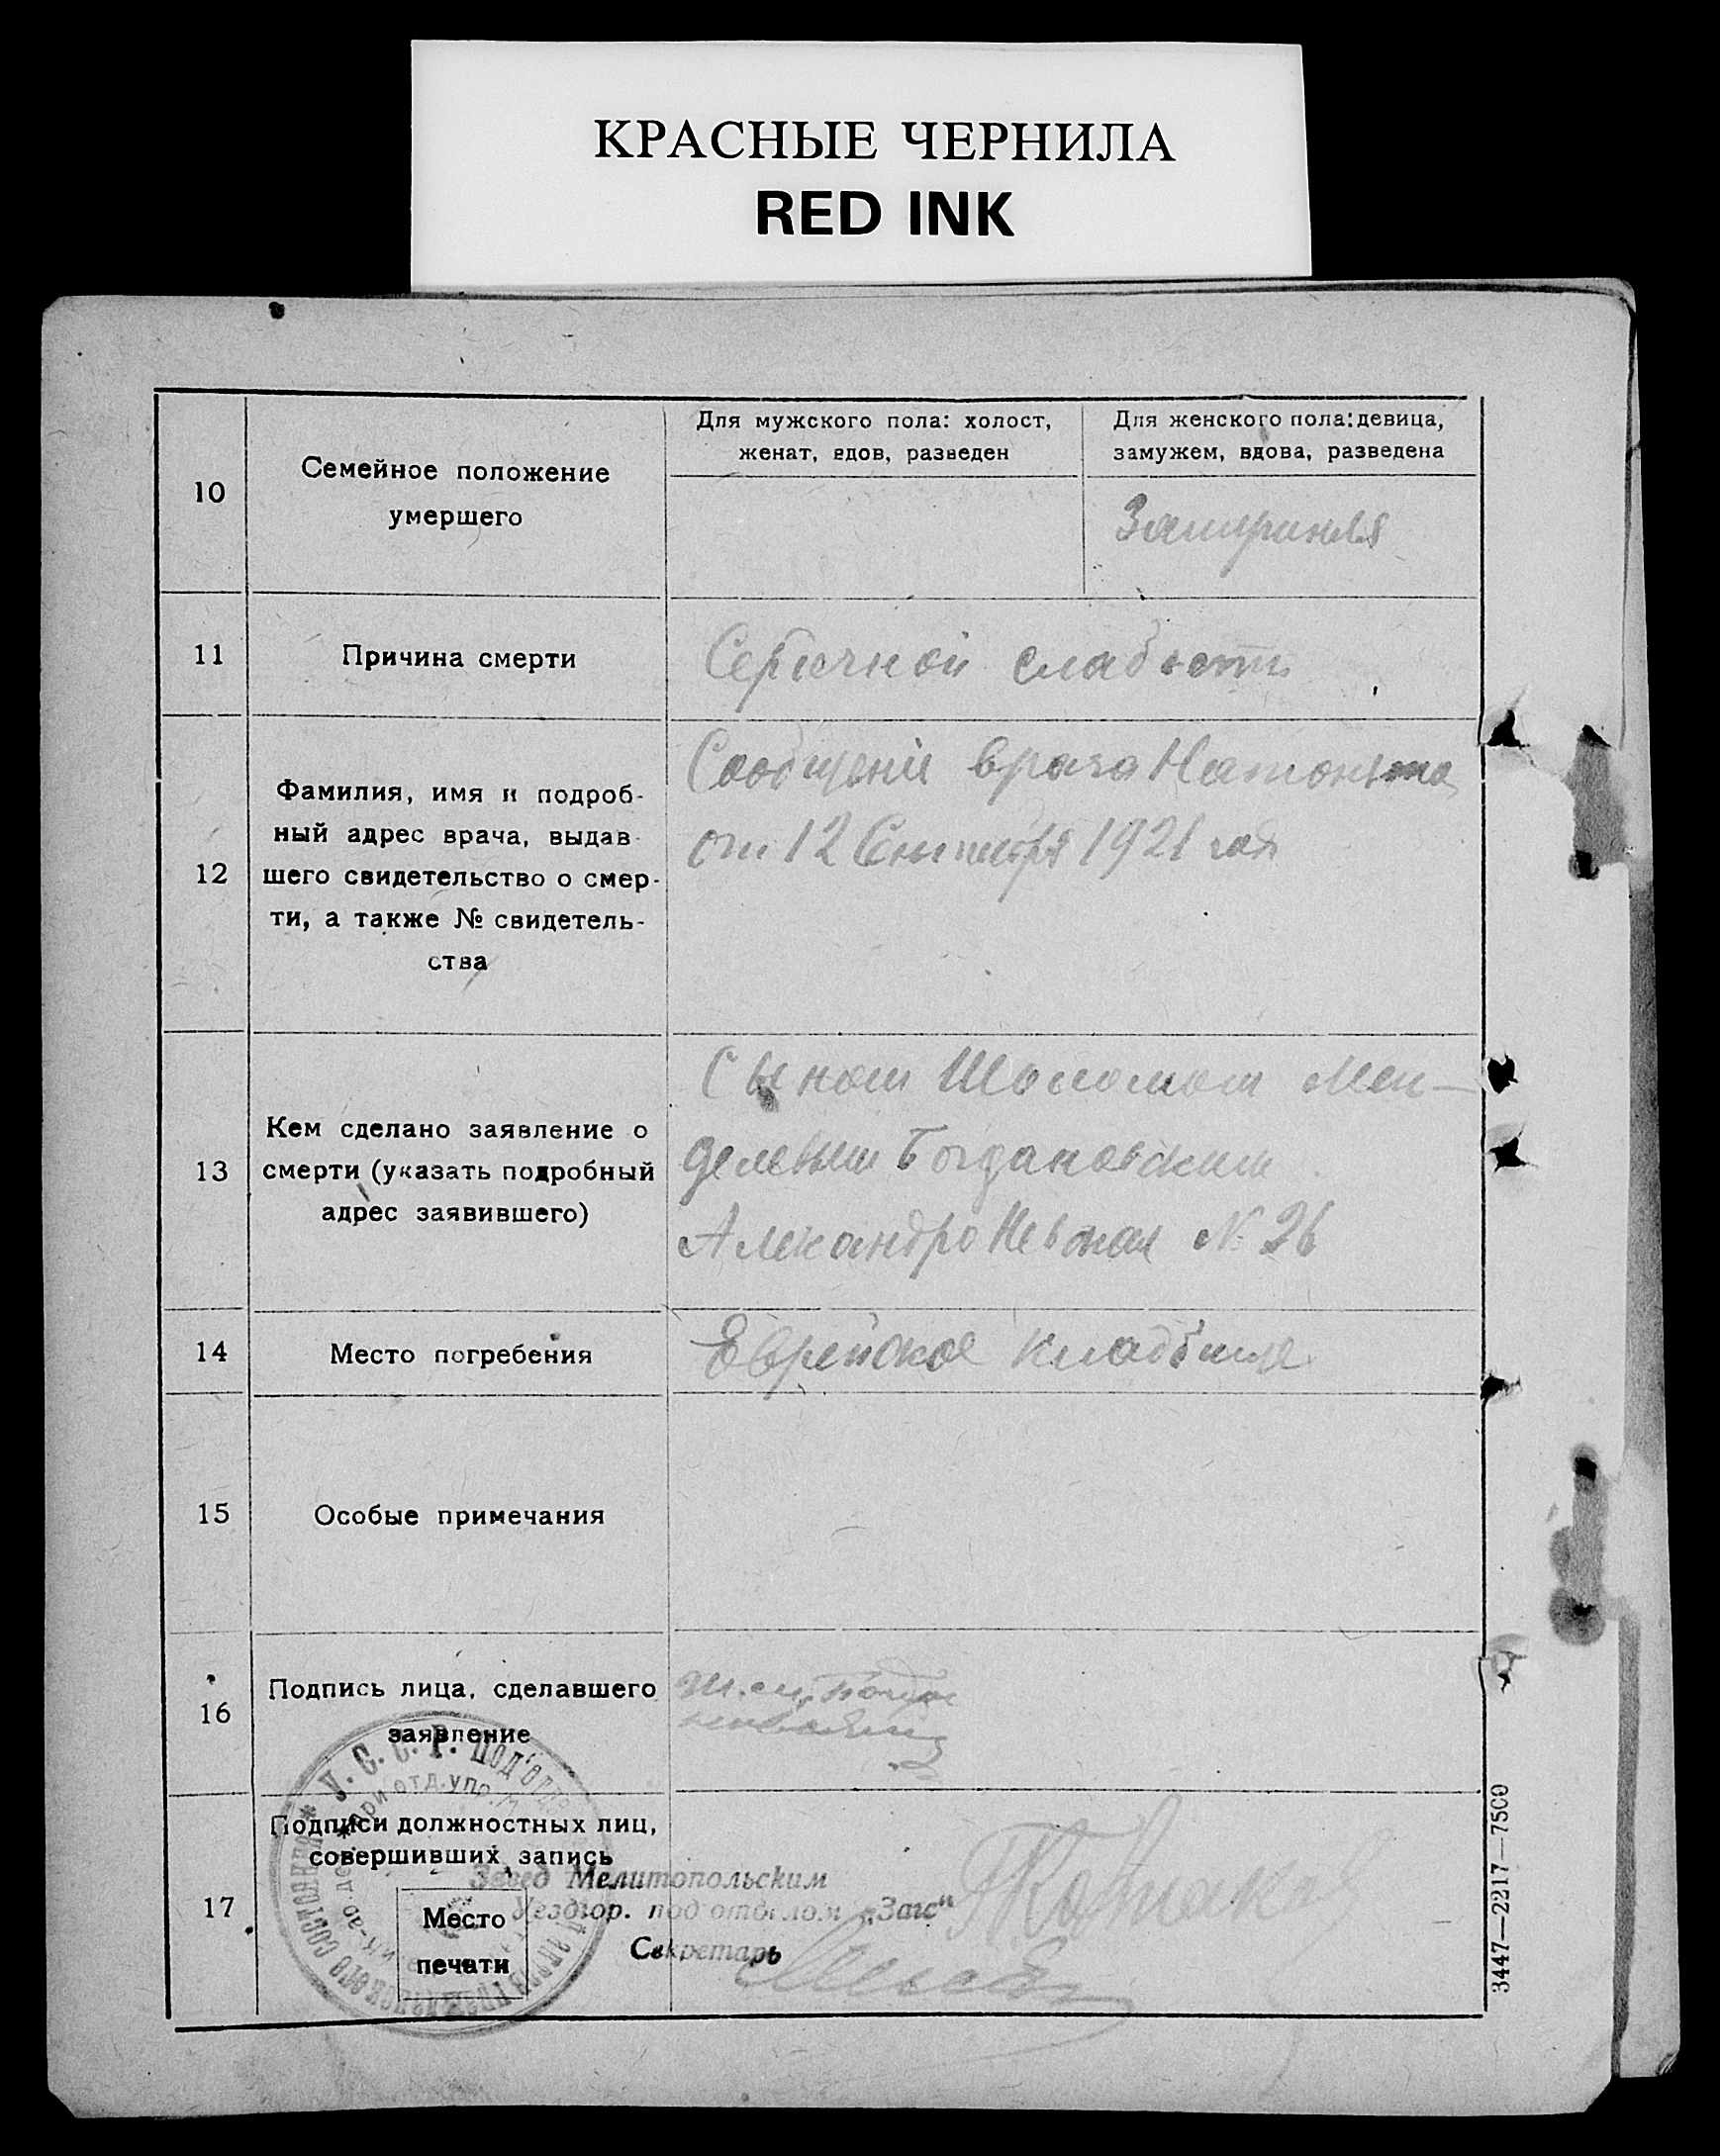 КРАСНЫЕ ЧЕРНИЛА
RED INK
10
Семейное положение
умершего
Для мужского пола: холост,
женат, вдов, разведен
Для женского пола: девица,
замужем, вдова, разведена
Замужняя
11
Причина смерти
слабости
12
Фамилия, имя и подроб-
ный адрес врача, выдав-
шего свидетельство о смер-
ти, а также № свидетель-
ства
врача
от 12 Сентября 1921 года
13
Кем сделано заявление о
смерти (указать подробный
адрес заявившего)
Сыном Шоломом Мен-
делевым Богдановским
Александро Невская № 26
14
Место погребения
Еврейское кладбище
15
Особые примечания
16
Подпись лица, сделавшего
заявление
17
Подписи должностных лиц,
совершивших запись
Место
печати
Завед Мелитопольским
Уездгор. под'отделом „Загс“
Секретарь
У. С. С. Р.
3447—2217—7500